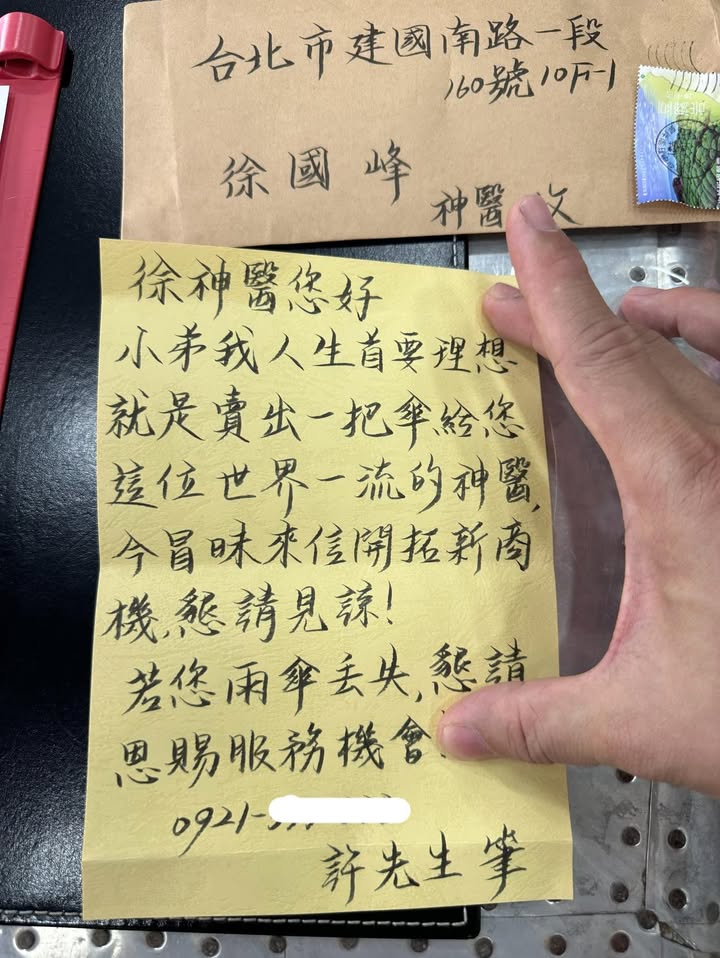 台北市建國南路一段
160號10F-1
徐國峰
神醫收
徐神醫您好
小弟我人生首要理想
就是賣出一把傘給您
這位世界一流的神醫,
今冒昧來信開拓新商
機,懇請見諒!
若您雨傘丟失,懇請
恩賜服務機會
0921-
許先生筆